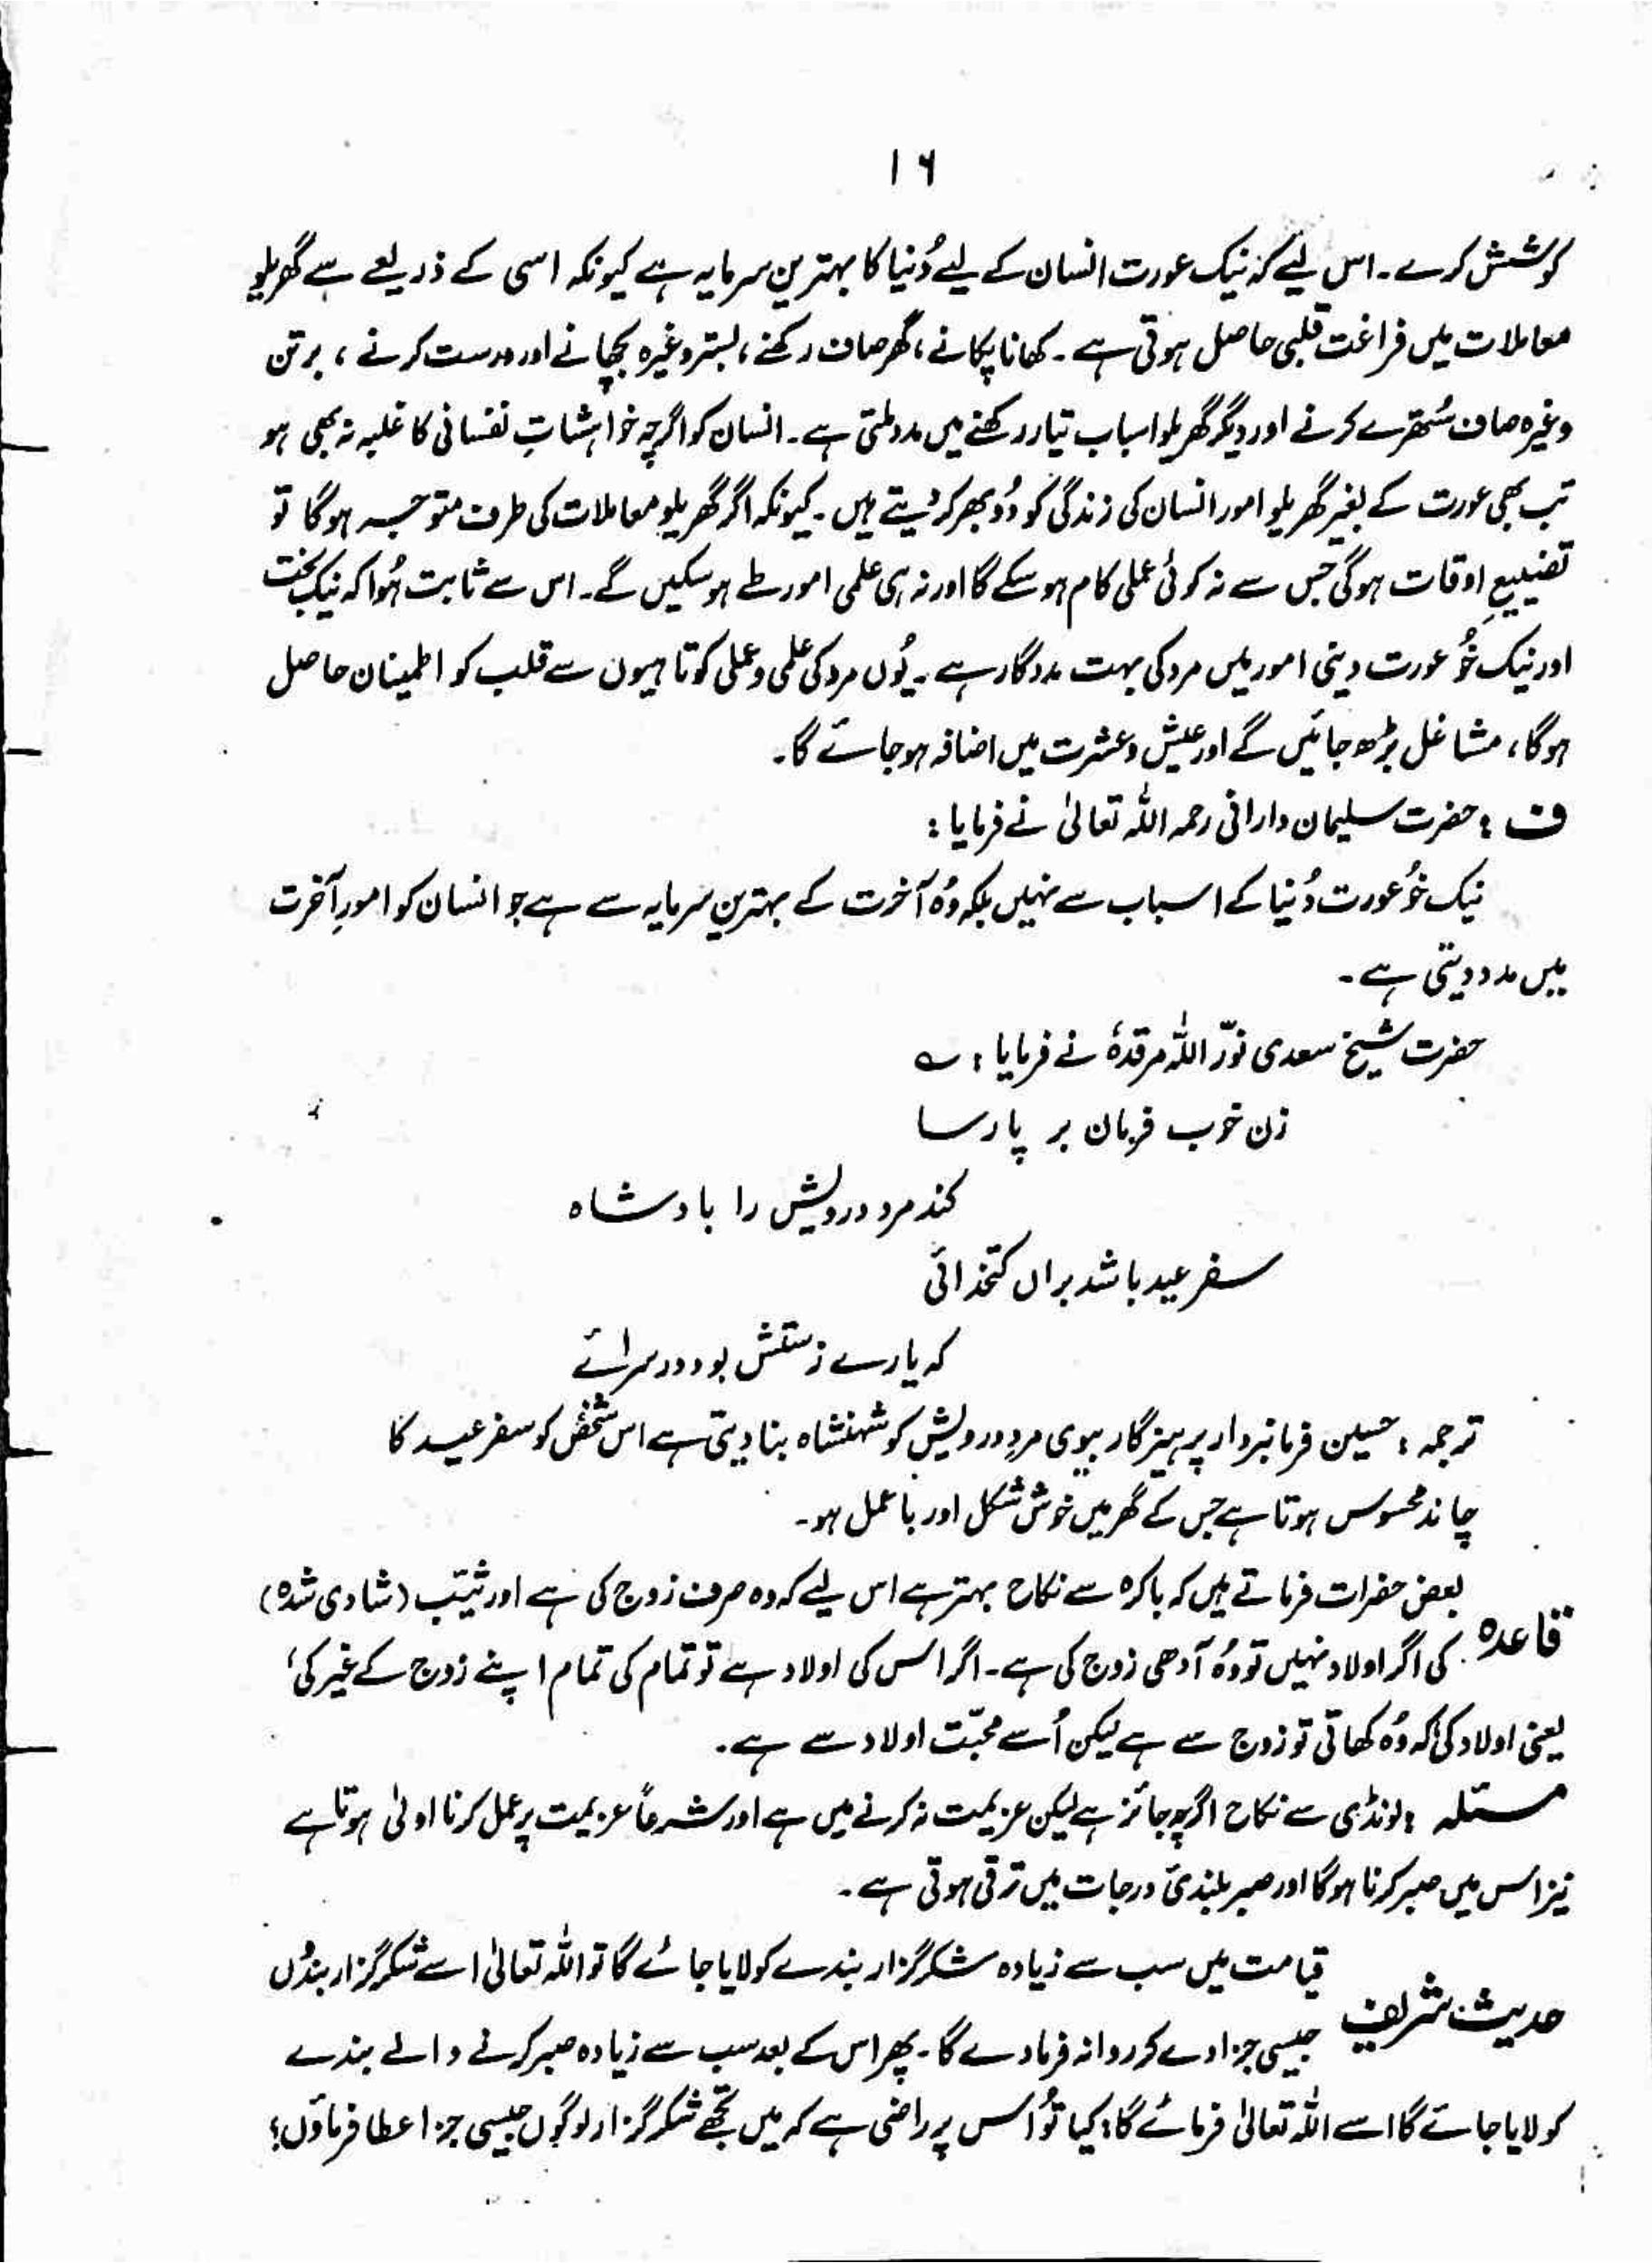 ۱۶
کوشش کرے۔ اس لیے کہ نیک عورت انسان کے لیے دُنیا کا بہترین سرمایہ ہے کیونکہ اسی کے ذریعے سے گھریلو
معاملات میں فراغت قلبی حاصل ہوتی ہے۔ کھانا پکانے، گھر صاف رکھنے، بستر وغیرہ بچھانے اور درست کرنے، برتن
وغیرہ صاف سُتھرے کرنے اور دیگر گھریلو اسباب تیار رکھنے میں مدد ملتی ہے۔ انسان کو اگرچہ خواہشاتِ نفسانی کا غلبہ نہ بھی ہو
تب بھی عورت کے بغیر گھریلو امور انسان کی زندگی کو دُوبھر کر دیتے ہیں۔ کیونکہ اگر گھریلو معاملات کی طرف متوجہ ہوگا تو
تضییعِ اوقات ہوگی جس سے نہ کوئی عملی کام ہو سکے گا اور نہ ہی علمی امور طے ہو سکیں گے۔ اس سے ثابت ہُوا کہ نیک بخت
اور نیک خُو عورت دینی امور میں مرد کی بہت مددگار ہے۔ یُوں مرد کی علمی و عملی کوتاہیوں سے قلب کو اطمینان حاصل
ہوگا، مشاغل بڑھ جائیں گے اور عیش و عشرت میں اضافہ ہو جائے گا۔
ف : حضرت سلیمان دارانی رحمہ اللہ تعالیٰ نے فرمایا :
نیک خُو عورت دُنیا کے اسباب سے نہیں بلکہ وُہ آخرت کے بہترین سرمایہ سے ہے جو انسان کو امورِ آخرت
میں مدد دیتی ہے۔
حضرت شیخ سعدی نوّر اللہ مرقدہٗ نے فرمایا : ؎
زن خوب فرمان بر پارسا
کند مرد درویش را بادشاہ
سفر عید باشد براں کتخدائی
کہ یارے زستش بود در سرائے
ترجمہ : حسین فرمانبردار پرہیزگار بیوی مردِ درویش کو شہنشاہ بنا دیتی ہے اس شخص کو سفر عید کا
چاند محسوس ہوتا ہے جس کے گھر میں خوش شکل اور باعمل ہو۔
قاعدہ بعض حضرات فرماتے ہیں کہ باکرہ سے نکاح بہتر ہے اس لیے کہ وہ صرف زوج کی ہے اور ثیّب (شادی شدہ)
کی اگر اولاد نہیں تو وُہ آدھی زوج کی ہے۔ اگر اس کی اولاد ہے تو تمام کی تمام اپنے زوج کے غیر کی،
یعنی اولاد کی کہ وُہ کھاتی تو زوج سے ہے لیکن اُسے محبّت اولاد سے ہے۔
مسئلہ : لونڈی سے نکاح اگرچہ جائز ہے لیکن عزیمت نہ کرنے میں ہے اور شرعاً عزیمت پر عمل کرنا اولیٰ ہوتا ہے
نیز اس میں صبر کرنا ہوگا اور صبر بلندیٔ درجات میں ترقی ہوتی ہے۔
حدیث شریف قیامت میں سب سے زیادہ شکر گزار بندے کو لایا جائے گا تو اللہ تعالیٰ اسے شکر گزار بندُں
جیسی جزا دے کر روانہ فرما دے گا۔ پھر اس کے بعد سب سے زیادہ صبر کرنے والے بندے
کو لایا جائے گا اسے اللہ تعالیٰ فرمائے گا: کیا تُو اس پر راضی ہے کہ میں تجھے شکر گزار لوگوں جیسی جزا عطا فرماؤں؛